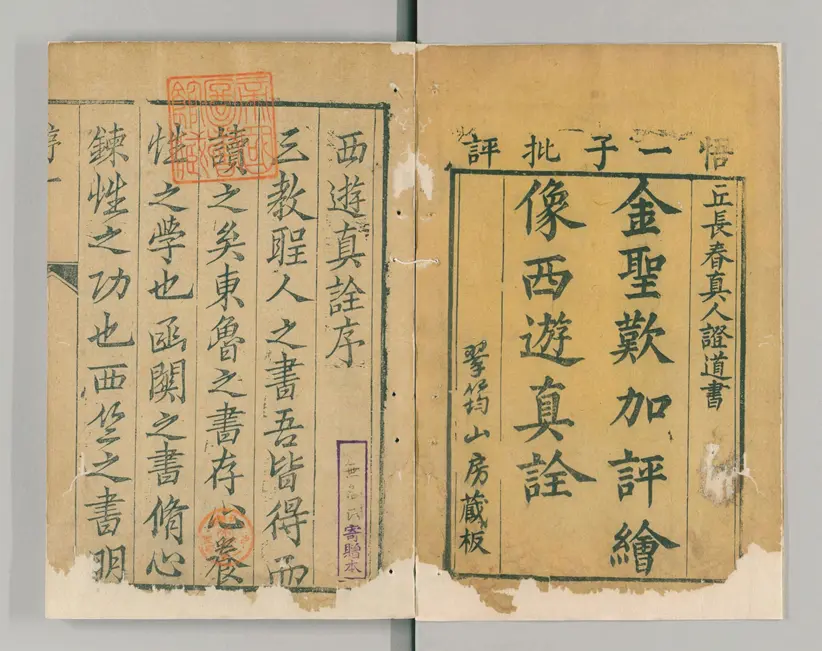 悟一子批評
丘長春真人證道書
金聖歎加評繪
像西遊真詮
翠筠山房藏板
西遊真詮序
三教聖人之書吾皆得而
讀之矣東魯之書存心養
性之學也函関之書脩心
鍊性之功也西竺之書明
序一
寄贈本